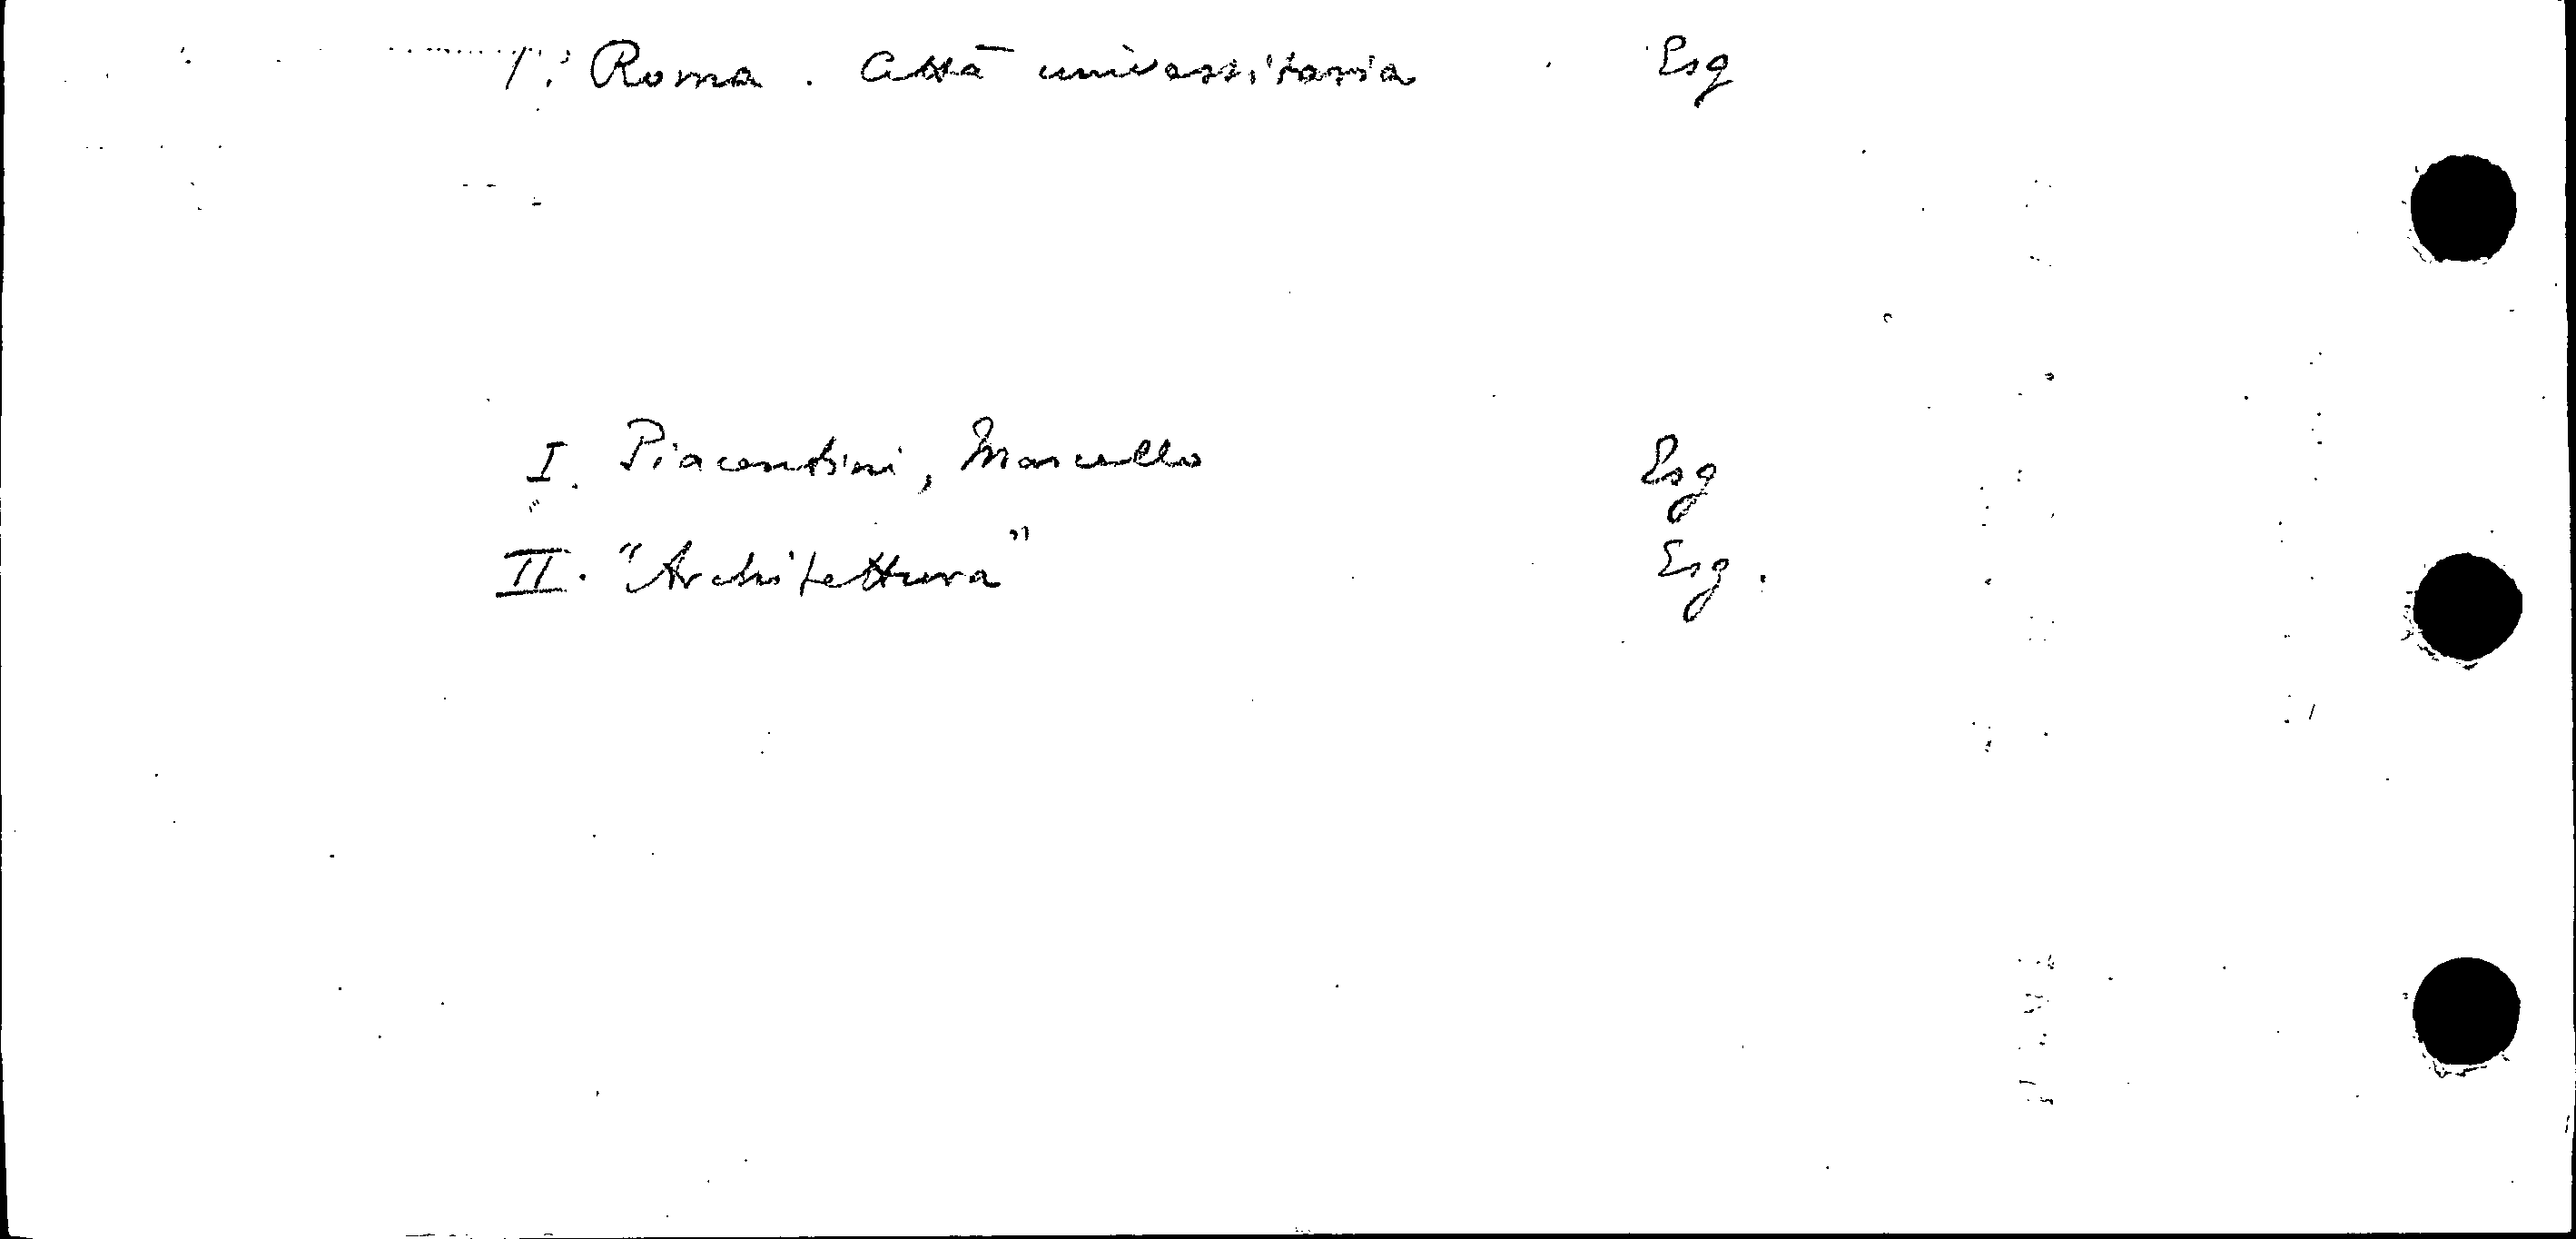 1. Roma. Città universitaria Esg
I. Piacentini, Marcello Esg
II. "Architettura" Esg.